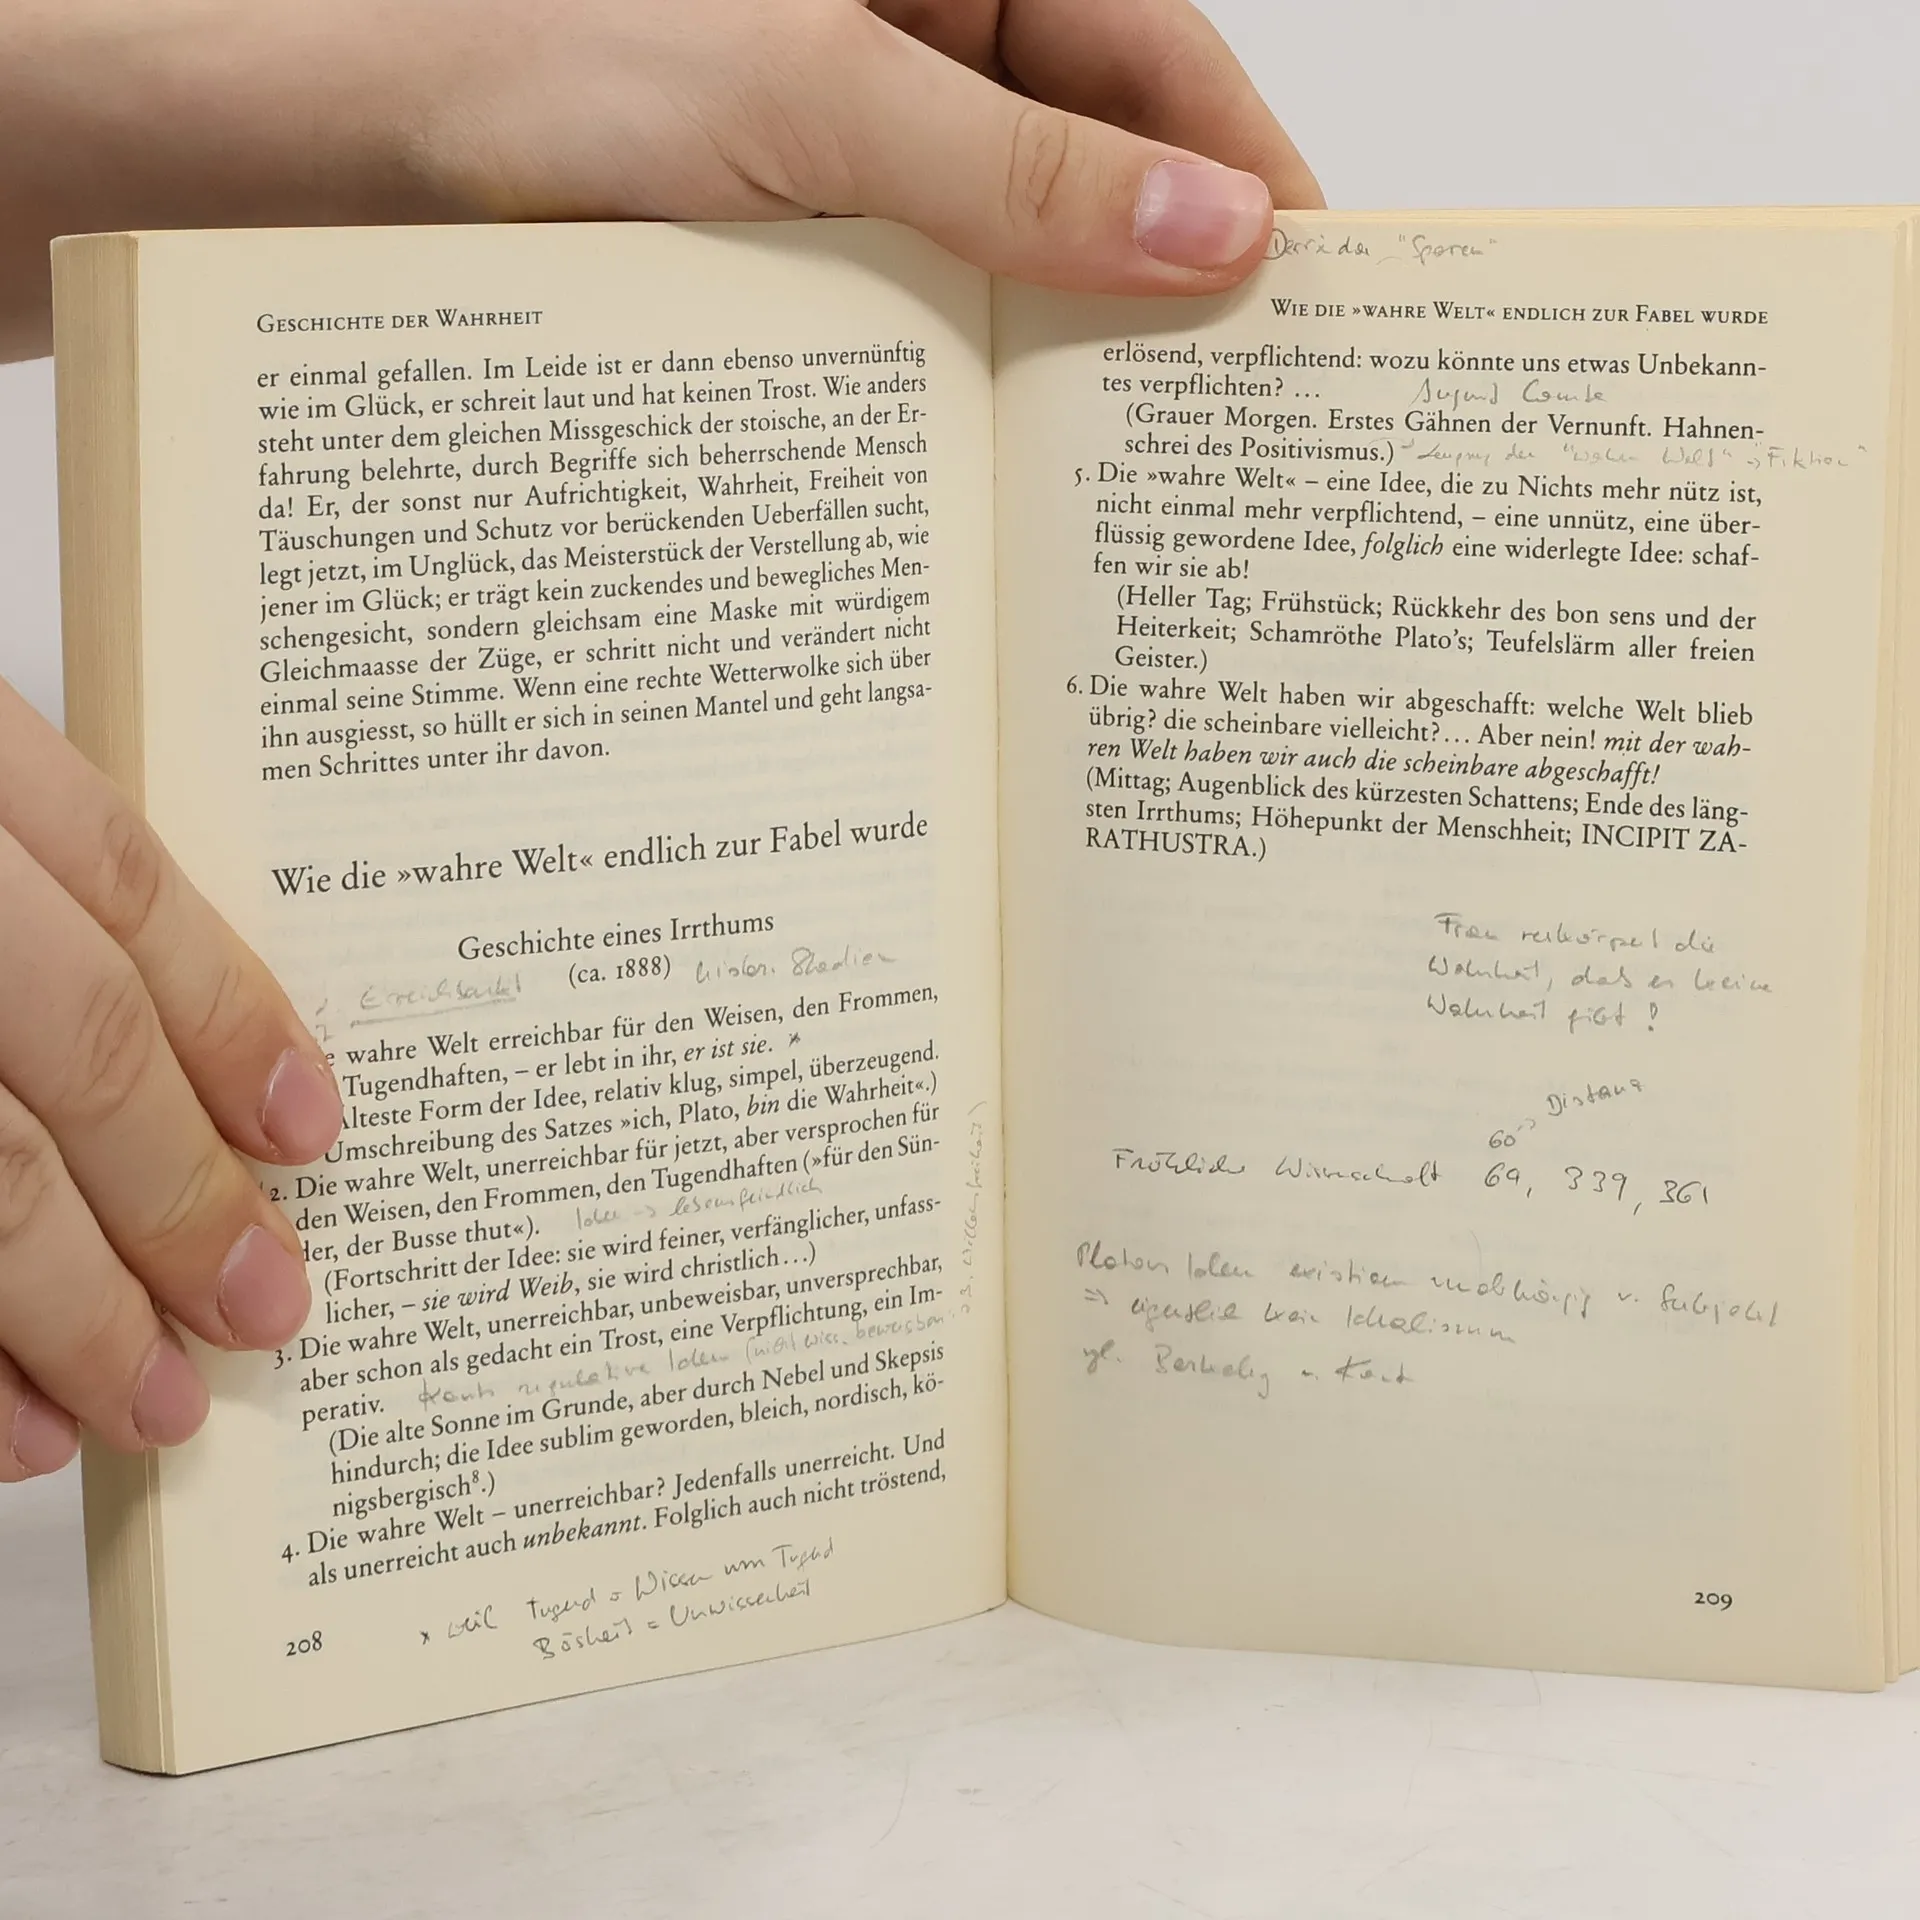 GESCHICHTE DER WAHRHEIT
er einmal gefallen. Im Leide ist er dann ebenso unvernünftig
wie im Glück, er schreit laut und hat keinen Trost. Wie anders
steht unter dem gleichen Missgeschick der stoische, an der Er-
fahrung belehrte, durch Begriffe sich beherrschende Mensch
da! Er, der sonst nur Aufrichtigkeit, Wahrheit, Freiheit von
Täuschungen und Schutz vor berückenden Ueberfällen sucht,
legt jetzt, im Unglück, das Meisterstück der Verstellung ab, wie
jener im Glück; er trägt kein zuckendes und bewegliches Men-
schengesicht, sondern gleichsam eine Maske mit würdigem
Gleichmaasse der Züge, er schritt nicht und verändert nicht
einmal seine Stimme. Wenn eine rechte Wetterwolke sich über
ihn ausgiesst, so hüllt er sich in seinen Mantel und geht langsa-
men Schrittes unter ihr davon.
Wie die »wahre Welt« endlich zur Fabel wurde
Geschichte eines Irrthums
(ca. 1888) histor. Stadien
Erreichbarkeit
e wahre Welt erreichbar für den Weisen, den Frommen,
Tugendhaften, – er lebt in ihr, er ist sie. *
lteste Form der Idee, relativ klug, simpel, überzeugend.
Umschreibung des Satzes »ich, Plato, bin die Wahrheit«.)
2. Die wahre Welt, unerreichbar für jetzt, aber versprochen für
den Weisen, den Frommen, den Tugendhaften (»für den Sün-
der, der Busse thut«). Ideen -> lebensfeindlich
(Fortschritt der Idee: sie wird feiner, verfänglicher, unfass-
licher, – sie wird Weib, sie wird christlich...)
3. Die wahre Welt, unerreichbar, unbeweisbar, unversprechbar,
aber schon als gedacht ein Trost, eine Verpflichtung, ein Im-
perativ. Kants regulative Ideen (nicht wiss. beweisbar:
z.B. Willensfreiheit)
(Die alte Sonne im Grunde, aber durch Nebel und Skepsis
hindurch; die Idee sublim geworden, bleich, nordisch, kö-
nigsbergisch⁸.)
4. Die wahre Welt – unerreichbar? Jedenfalls unerreicht. Und
als unerreicht auch unbekannt. Folglich auch nicht tröstend,
* weil Tugend = Wissen um Tugend
Bösheit = Unwissenheit
208
Derrida "Sporen"
WIE DIE »WAHRE WELT« ENDLICH ZUR FABEL WURDE
erlösend, verpflichtend: wozu könnte uns etwas Unbekann-
tes verpflichten? ... August Comte
(Grauer Morgen. Erstes Gähnen der Vernunft. Hahnen-
schrei des Positivismus.) -> Leugnung der "wahren Welt" -> "Fiktion"
5. Die »wahre Welt« – eine Idee, die zu Nichts mehr nütz ist,
nicht einmal mehr verpflichtend, – eine unnütz, eine über-
flüssig gewordene Idee, folglich eine widerlegte Idee: schaf-
fen wir sie ab!
(Heller Tag; Frühstück; Rückkehr des bon sens und der
Heiterkeit; Schamröthe Plato's; Teufelslärm aller freien
Geister.)
6. Die wahre Welt haben wir abgeschafft: welche Welt blieb
übrig? die scheinbare vielleicht?... Aber nein! mit der wah-
ren Welt haben wir auch die scheinbare abgeschafft!
(Mittag; Augenblick des kürzesten Schattens; Ende des läng-
sten Irrthums; Höhepunkt der Menschheit; INCIPIT ZA-
RATHUSTRA.)
Frau verkörpert die
Wahrheit, daß es keine
Wahrheit gibt!
60 -> Distanz
Fröhliche Wissenschaft 69, 339, 361
Platons Ideen existieren unabhängig v. Subjekt
=> eigentlich kein Idealismus
vgl. Berkeley u. Kant
209